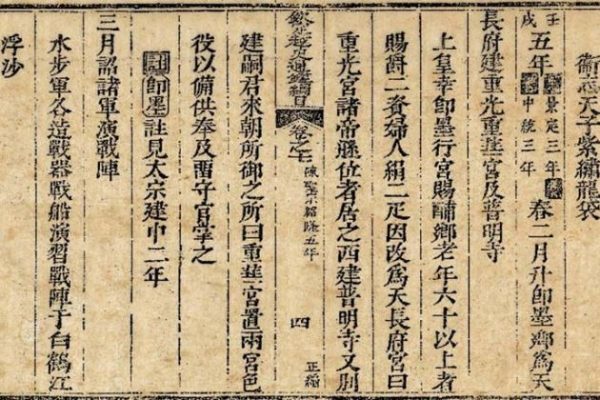 天子紫繡龍袋
壬戌五年宋景定三年元中統三年春二月升即墨鄉爲天
長府建重光重華宮及普明寺
上皇幸即墨行宮賜酺鄉老年六十以上者
賜爵一資婦人絹二疋因改爲天長府宮曰
重光宮諸帝遜位者居之西建普明寺又別
欽定越史通鑑綱目 卷之七 陳聖宗紹隆五年 四 正編
建嗣君來朝所御之所曰重華宮置兩宮邑
役以備供奉及畱守官掌之
註即墨註見太宗建中二年
三月詔諸軍演戰陣
水步軍各造戰器戰船演習戰陣于白鶴江
浮沙